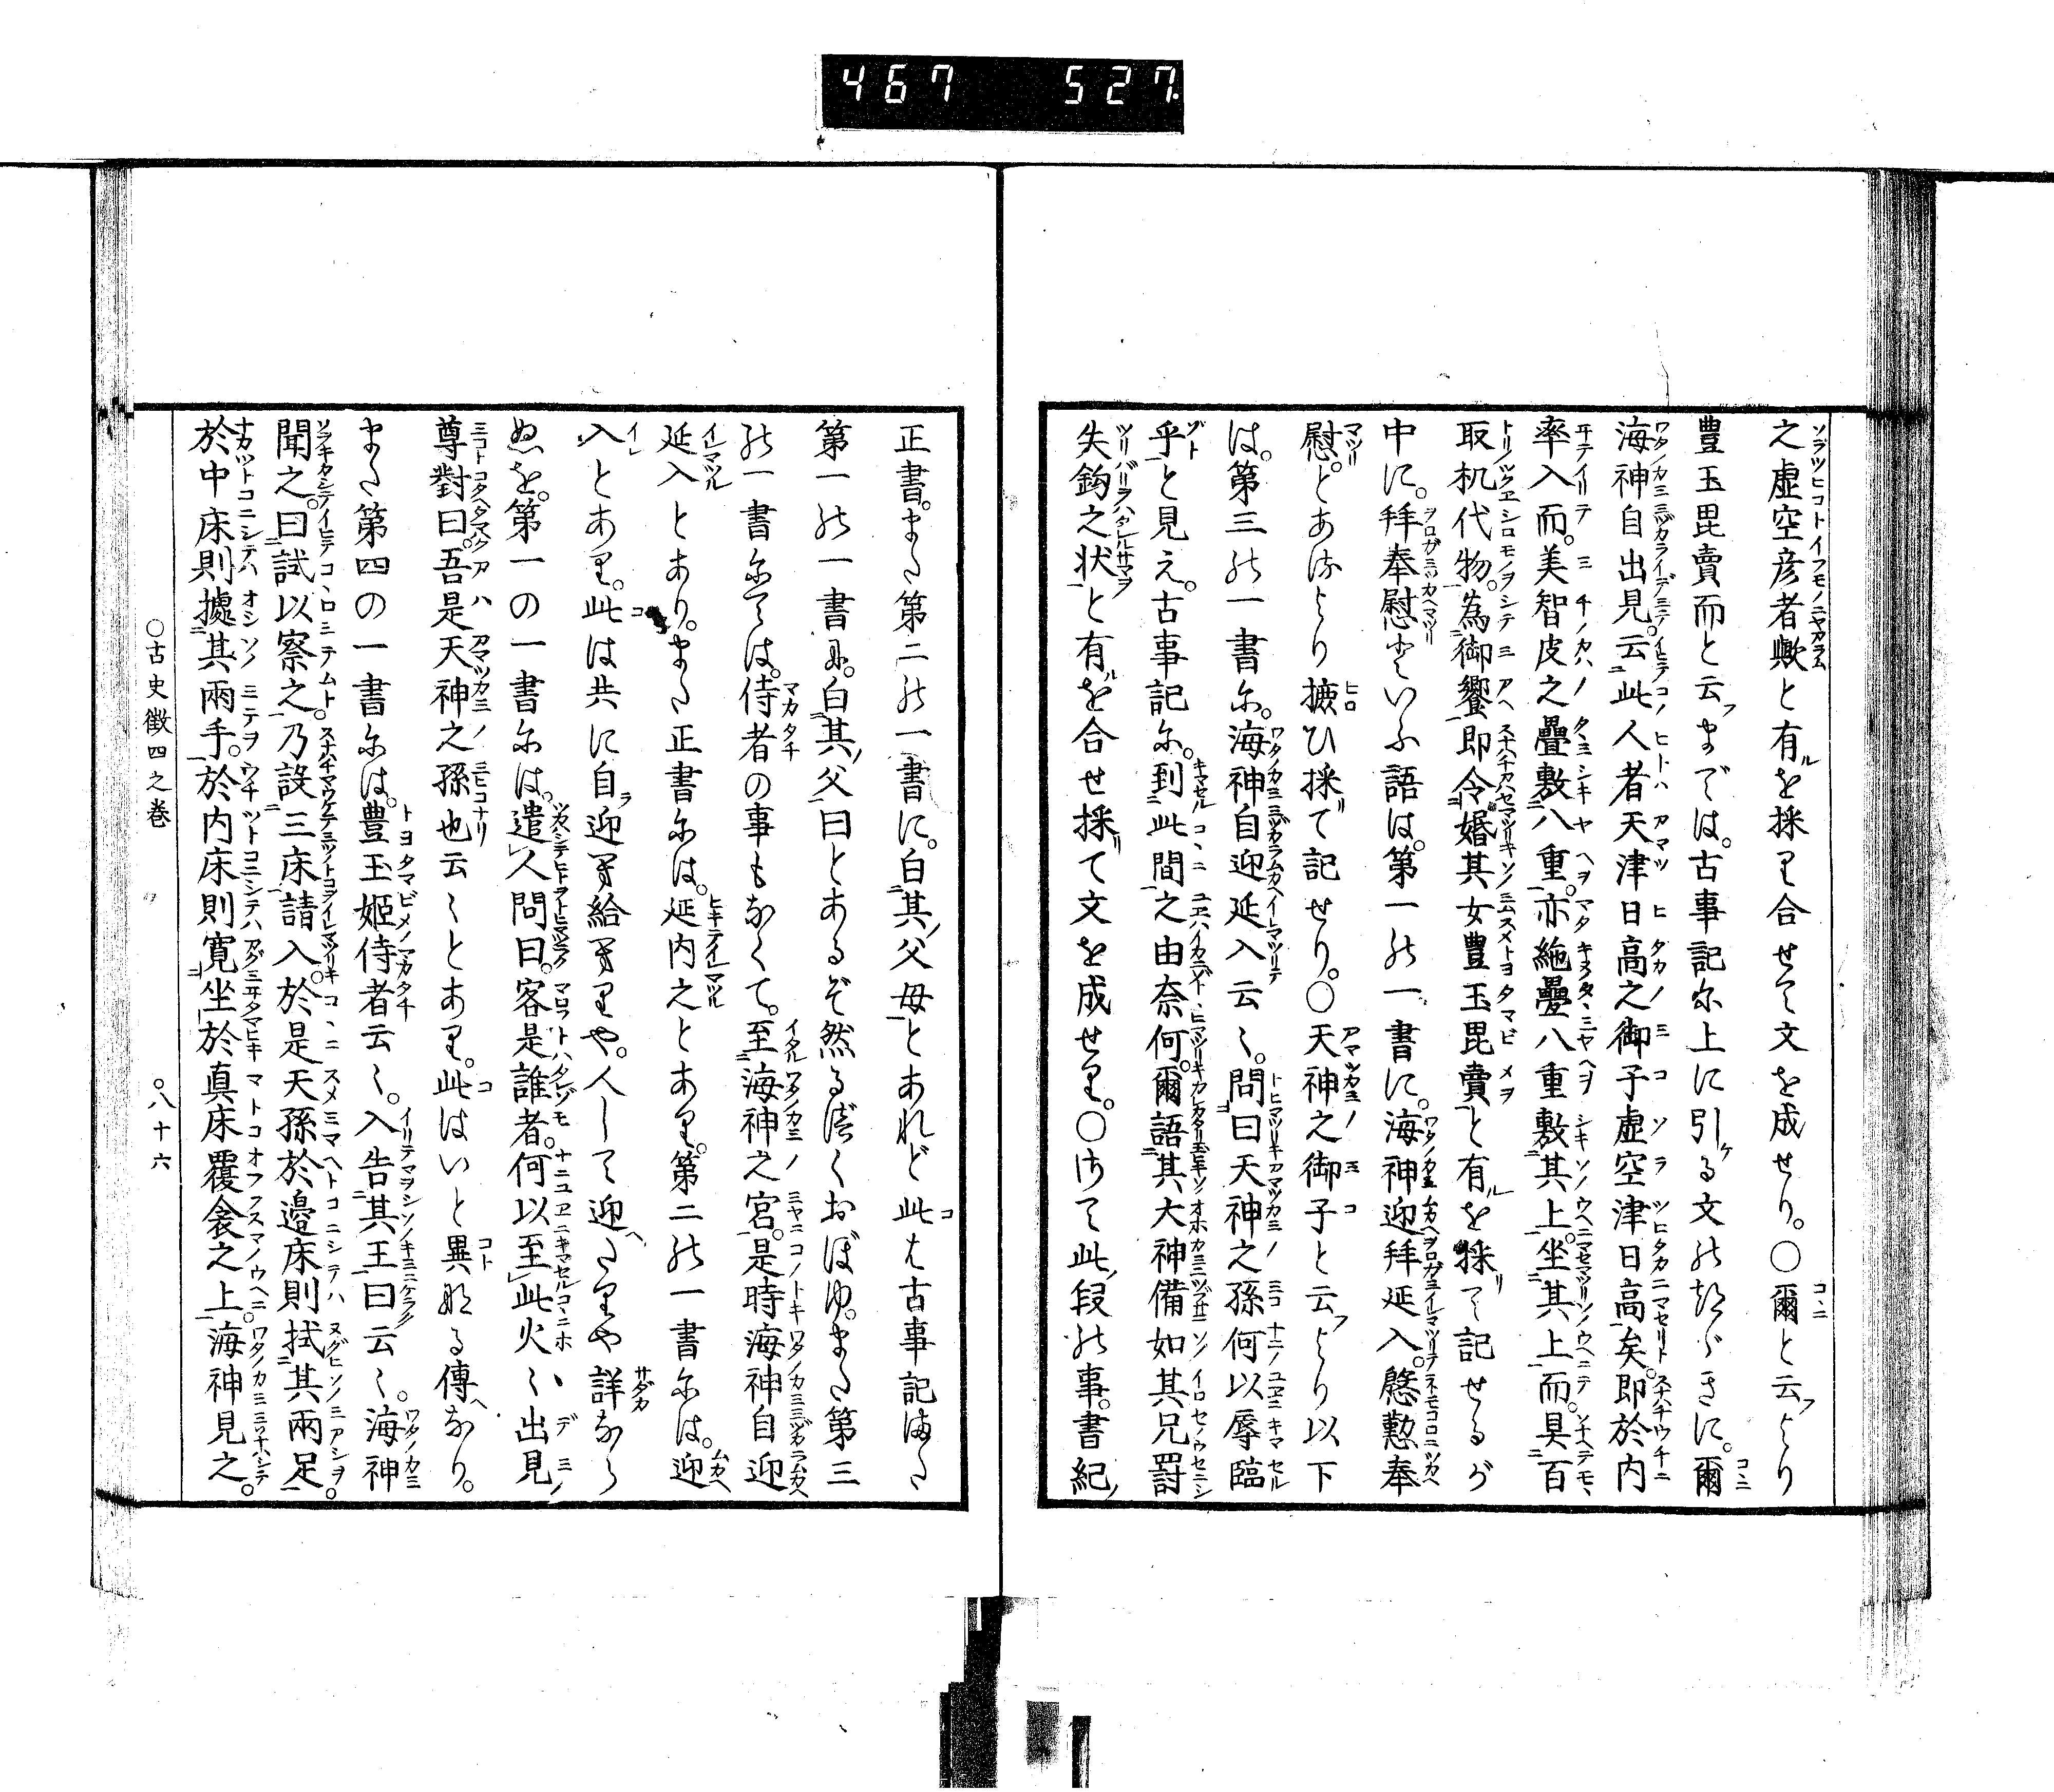 467 527.
之虚空彦者歟と有ルを採り合せて文を成せり。○爾と云フより
豊玉毘賣而と云フまでは。古事記に上に引ケる文のつゞきに。爾
海神自出見。云此人者天津日高之御子虚空津日高矣。即於内
率入而。美智皮之疊敷八重。亦絁疊八重敷其上。坐其上而。具百
取机代物。為御饗即令婚其女豊玉毘賣と有ルを採リて記せるが
中に。拜奉慰といふ語は。第一の一書に。海神迎拜延入。慇懃奉
慰。とあるより摭ひ採リて記せり。○天神之御子と云フより以下
は。第三の一書に。海神自迎延入云〻。問曰天神之孫何以辱臨
乎と見え。古事記に。到此間之由奈何。爾語其大神備如其兄罸
失鈎之状と有ルを合せ採リて文を成せり。○さて此ノ段の事。書紀ノ
正書。また第二の一書に。白其ノ父母とあれど此は古事記また
第一の一書に。白其ノ父曰とあるぞ然るべくおぼゆ。また第三
の一書には。侍者の事もなくて。至海神之宮。是時海神自迎
延入とあり。また正書には。延内之とあり。第二の一書には。迎
入とあり。此は共に自ラ迎へ給へりや。人して迎ヘたりや詳なら
ぬを。第一の一書には。遣人問曰。客是誰者。何以至此火〻出見
尊對曰。吾是天神之孫也云〻とあり。此はいと異なる傳ヘなり。
また第四の一書には。豊玉姫侍者云〻。入告其王曰云〻。海神
聞之。曰試以察之。乃設三床請入。於是天孫於邉床則拭其兩足。
於中床則據其兩手。於内床則寛坐於真床覆衾之上。海神見之。
○古史徴四之巻 ○八十六